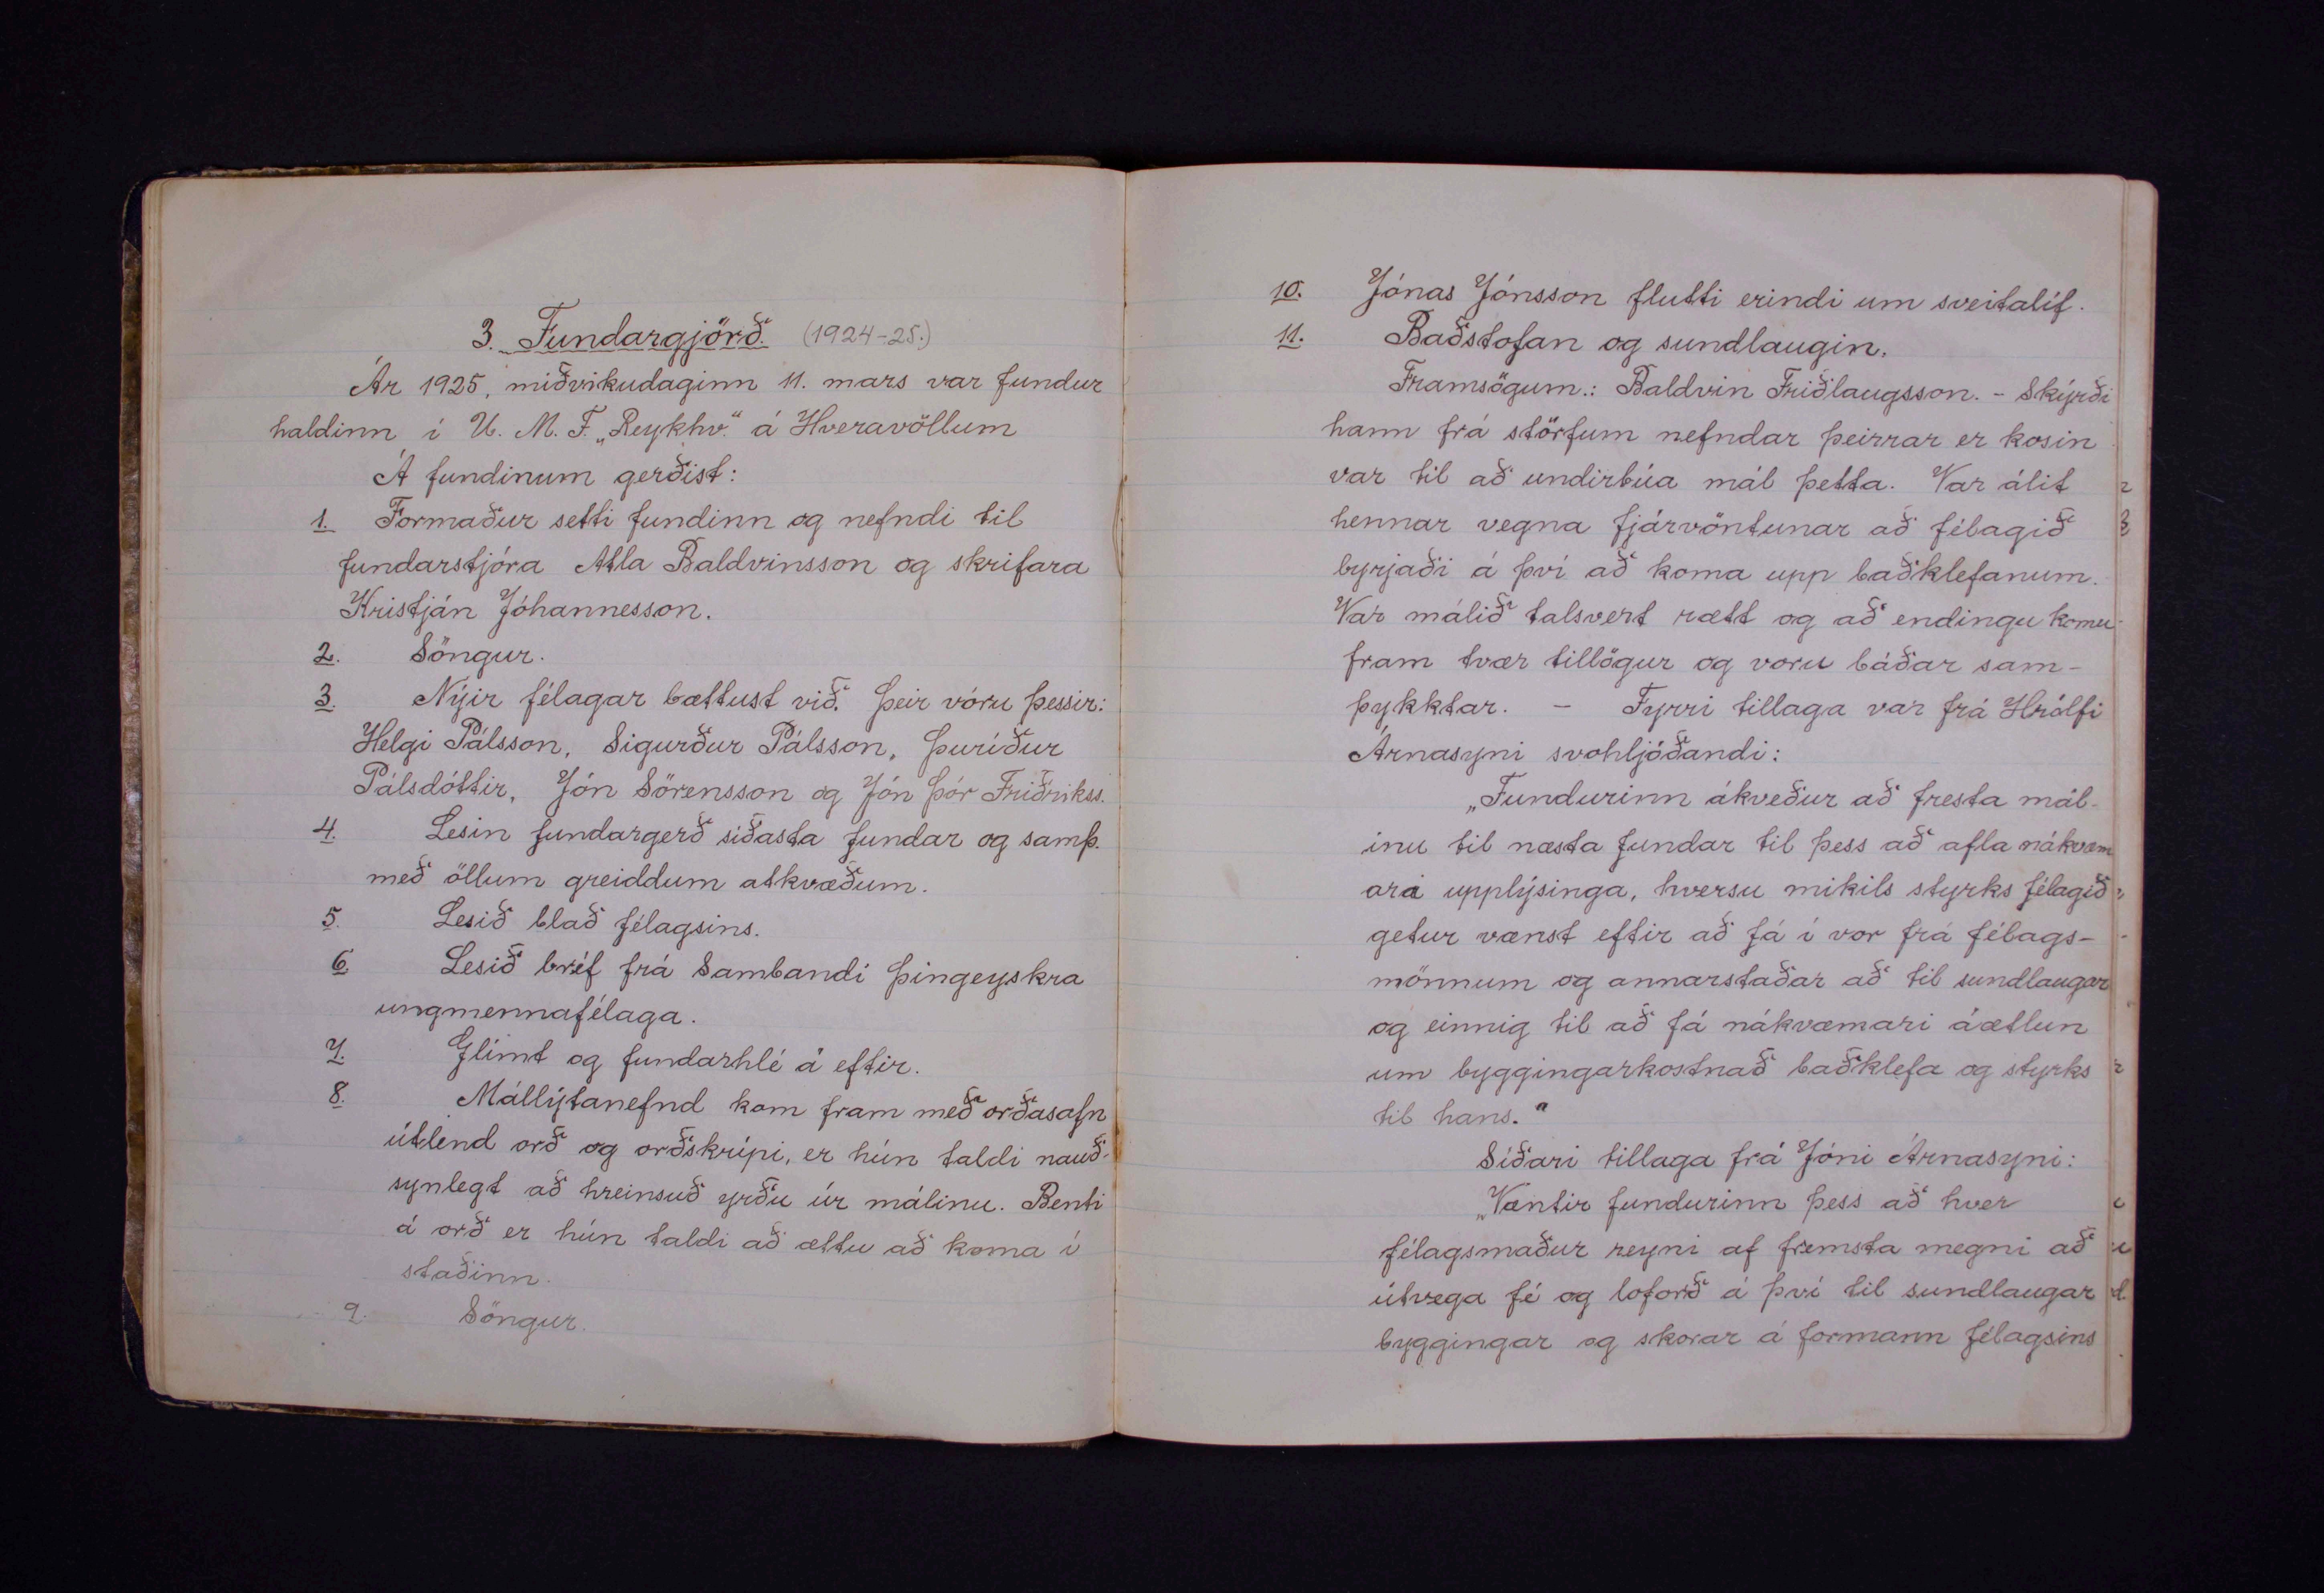 3. Fundargjörð. (1924-25.)
Ár 1925, miðvikudaginn 11. mars var fundur
haldinn í U. M. F. „Reykhv." á Hveravöllum
Á fundinum gerðist:
1. Formaður setti fundinn og nefndi til
fundarstjóra Atla Baldvinsson og skrifara
Kristján Jóhannesson.
2. Söngur.
3. Nýir félagar bættust við. Þeir vóru þessir:
Helgi Pálsson, Sigurður Pálsson, Þuríður
Pálsdóttir, Jón Sörensson og Jón Þór Friðrikss.
4. Lesin fundargerð síðasta fundar og samþ.
með öllum greiddum atkvæðum.
5. Lesið blað félagsins.
6. Lesið bréf frá Sambandi þingeyskra
ungmennafélaga.
7. Glímt og fundarhlé á eftir.
8. Mállýtanefnd kom fram með orðasafn
útlend orð og orðskrípi, er hún taldi nauð-
synlegt að hreinsuð yrðu úr málinu. Benti
á orð er hún taldi að ættu að koma í
staðinn.
9. Söngur.
10. Jónas Jónsson flutti erindi um sveitalíf.
11. Baðstofan og sundlaugin.
Framsögum.: Baldvin Friðlaugsson. - Skýrði
hann frá störfum nefndar þeirrar er kosin
var til að undirbúa mál þetta. Var álit
hennar vegna fjárvöntunar að félagið
byrjaði á því að koma upp baðklefanum.
Var málið talsvert rætt og að endingu komu
fram tvær tillögur og voru báðar sam-
þykktar. - Fyrri tillaga var frá Hrólfi
Árnasyni svohljóðandi:
„Fundurinn ákveður að fresta mál-
inu til næsta fundar til þess að afla nákvæm
ara upplýsinga, hversu mikils styrks félagið
getur vænst eftir að fá í vor frá félags-
mönnum og annarstaðar að til sundlaugar
og einnig til að fá nákvæmari áætlun
um byggingarkostnað baðklefa og styrks
til hans."
Síðari tillaga frá Jóni Árnasyni:
„Væntir fundurinn þess að hver
félagsmaður reyni af fremsta megni að
útvega fé og loforð á því til sundlaugar
byggingar og skorar á formann félagsins